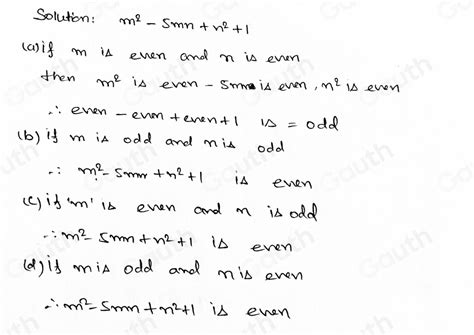 Solution: m² - 5mn + n² + 1
(a) if m is even and n is even
then m² is even - 5mn is even, n² is even
∴ even - even + even + 1 is = odd
(b) if m is odd and n is odd
∴ m² - 5mn + n² + 1 is even
(c) if 'm' is even and n is odd
∴ m² - 5mn + n² + 1 is even
(d) if m is odd and n is even
∴ m² - 5mn + n² + 1 is even
Gauth